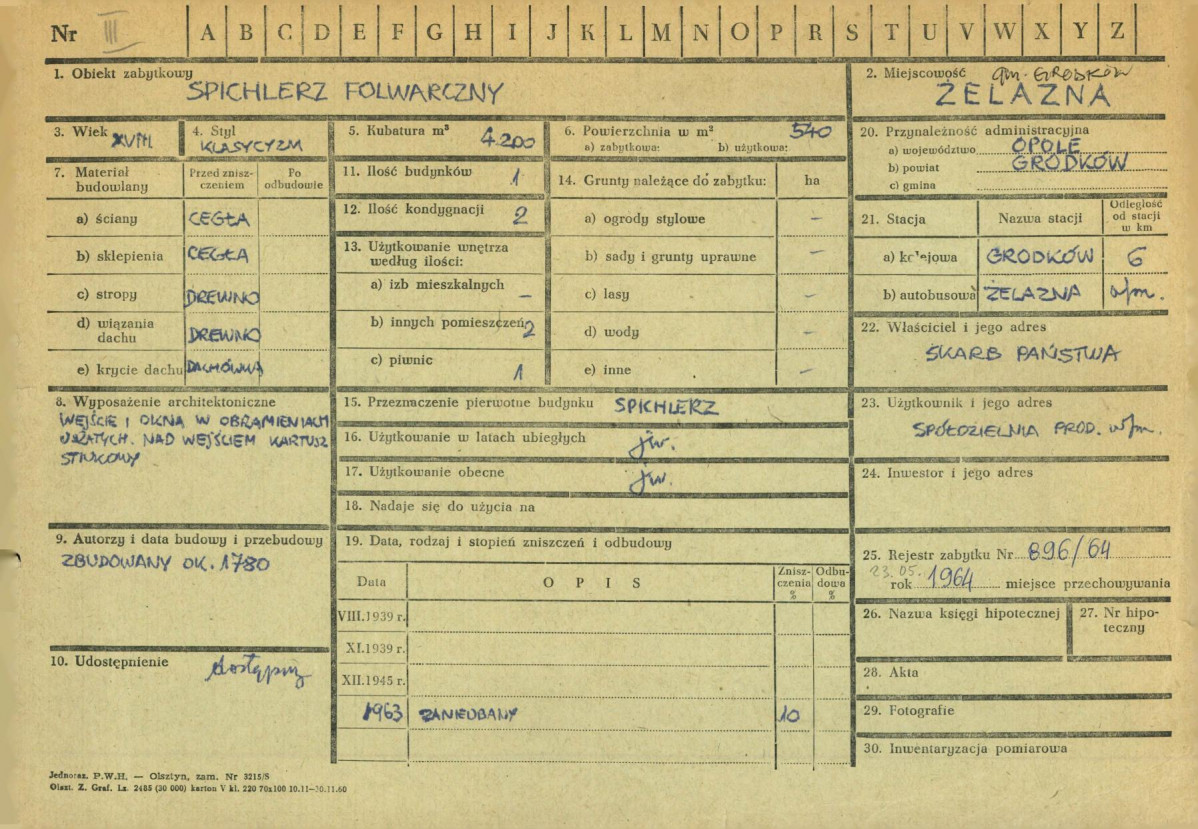 Nr III A B C D E F G H I J K L M N O P R S T U V W X Y Z
1. Obiekt zabytkowy
SPICHLERZ FOLWARCZNY
2. Miejscowość gm. GRODKÓW
ŻELAZNA
3. Wiek XVIII
4. Styl
KLASYCYZM
5. Kubatura m³ 4.200
6. Powierzchnia w m² 540
a) zabytkowa: b) użytkowa:
7. Materiał budowlany
Przed znisz-
czeniem
Po
odbudowie
a) ściany CEGŁA
b) sklepienia CEGŁA
c) stropy DREWNO
d) wiązania
dachu DREWNO
e) krycie dachu DACHÓWKA
8. Wyposażenie architektoniczne
WEJŚCIE I OKNA W OBRAMIENIACH
USZATYCH. NAD WEJŚCIEM KARTUSZ
STIUKOWY
9. Autorzy i data budowy i przebudowy
ZBUDOWANY OK. 1780
10. Udostępnienie dostępny
11. Ilość budynków 1
12. Ilość kondygnacji 2
13. Użytkowanie wnętrza
według ilości:
a) izb mieszkalnych –
b) innych pomieszczeń 2
c) piwnic 1
14. Grunty należące do zabytku: ha
a) ogrody stylowe –
b) sady i grunty uprawne –
c) lasy –
d) wody –
e) inne –
15. Przeznaczenie pierwotne budynku SPICHLERZ
16. Użytkowanie w latach ubiegłych jw.
17. Użytkowanie obecne jw.
18. Nadaje się do użycia na
19. Data, rodzaj i stopień zniszczeń i odbudowy
Data
OPIS
Znisz-
czenia
%
Odbu-
dowa
%
VIII.1939 r.
XI.1939 r.
XII.1945 r.
1963 ZANIEDBANY 10
20. Przynależność administracyjna
a) województwo OPOLE
b) powiat GRODKÓW
c) gmina
21. Stacja
Nazwa stacji
Odległość
od stacji
w km
a) kolejowa GRODKÓW 6
b) autobusowa ŻELAZNA
22. Właściciel i jego adres
SKARB PAŃSTWA
23. Użytkownik i jego adres
SPÓŁDZIELNIA PROD.
24. Inwestor i jego adres
25. Rejestr zabytku Nr 896/64
23.05.
rok 1964 miejsce przechowywania
26. Nazwa księgi hipotecznej
27. Nr hipo-
teczny
28. Akta
29. Fotografie
30. Inwentaryzacja pomiarowa
Jednoraz. P.W.H. — Olsztyn, zam. Nr 3215/S
Olszt. Z. Graf. Lz. 2485 (30 000) karton V kl. 220 70x100 10.11—30.11.60